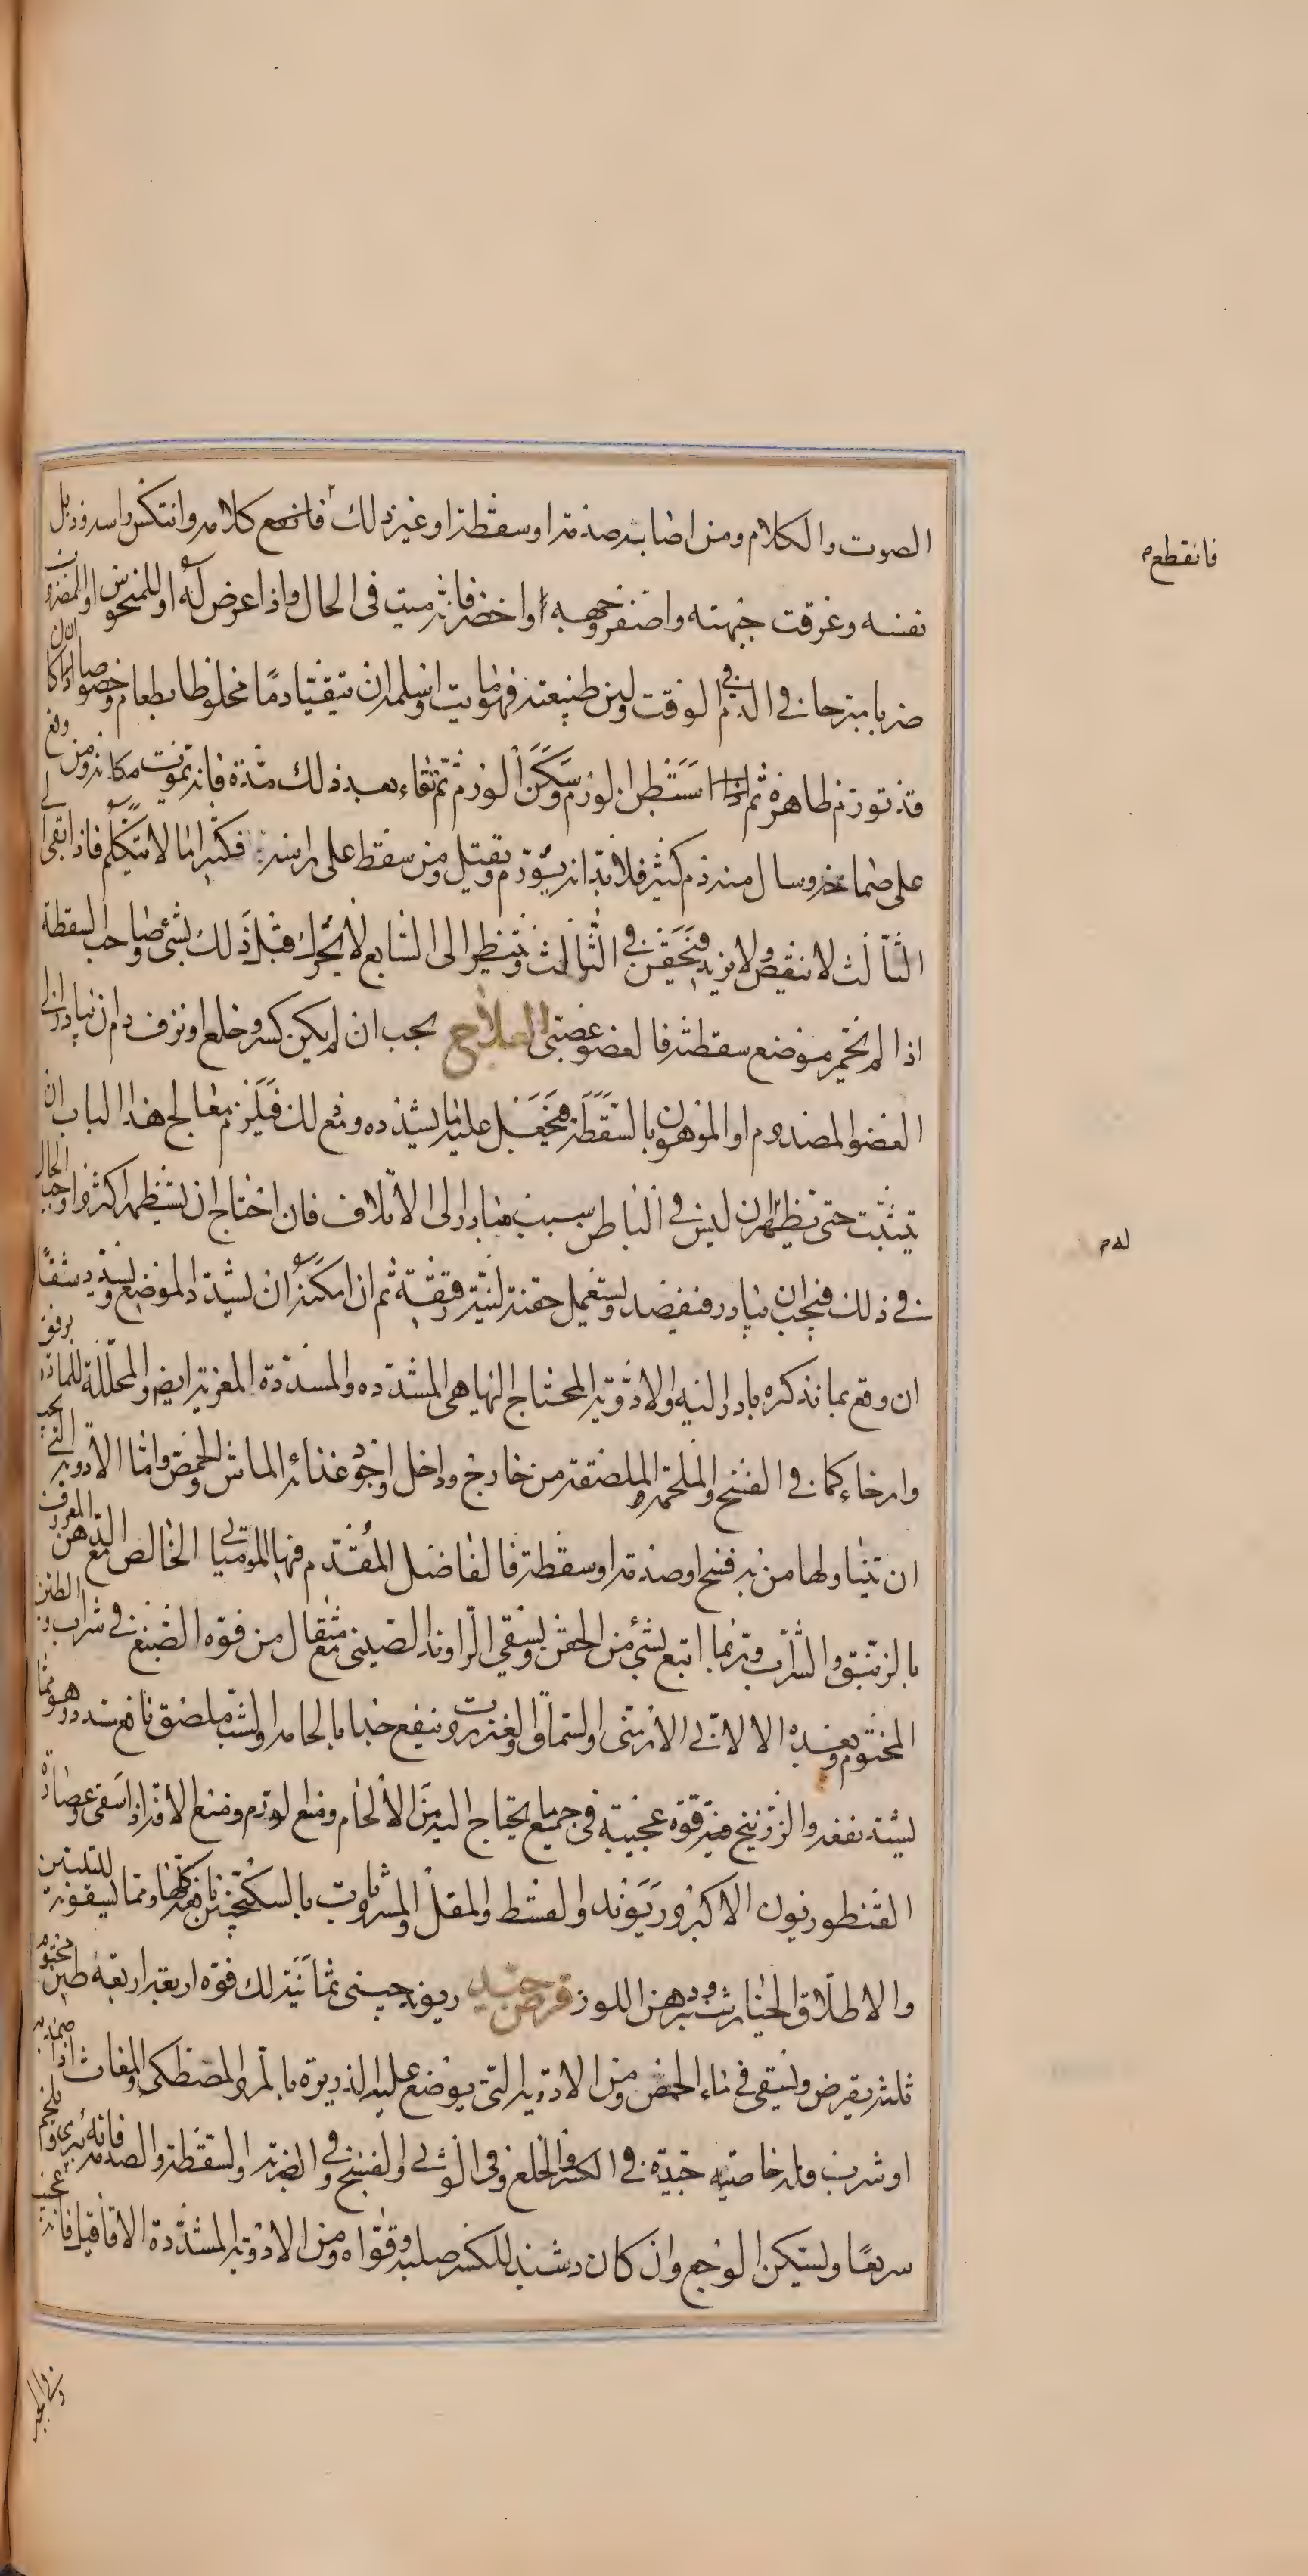 الصوت والكلام ومن اصابته صدمة او سقطة او غير ذلك فانقمع كلامه وانتكس راسه وذبل
فانقطع
نفسه وعرقت جبهته واصفر وجهه او اخضر فانه ميت فى الحال واذا عرض له او للمنخوس او المضروب
ضربا مبرحا فى الدم فى الوقت ولين طبيعته فهو مايت واسلمه ان يتقيا دما مخلوطا بطعام وخصوصا ان كان
قد تورم ظاهره ثم استبطن الورم وسكن الورم ثم تقاء بعد ذلك مدة فانه يموت مكانه ومن وقع
على صماخه وسال منه دم كثير فلا بد انه يتورم ويقتل ومن سقط على راسه فكثيرا ما لا يتكلم فاذا بقى الى
الثالث لا ينقص ولا يزيد فيحقن فى الثالث وينتظر الى السابع لا يحرك قبل ذلك بشئ وصاحب السقطة
اذا لم يحمر موضع سقطته فالعضو عصبى العلاج يجب ان لم يكن كسر وخلع او نزف دم ان يبادر الى
العضو المصدوم او الموهون بالسقطة فيجعل عليه ما يشدده ومع ذلك فيلزم معالج هذا الباب ان
يتثبت حتى يظهر ان ليس فى الباطن سبب مبادر الى الاتلاف فان احتاج ان يستظهر اكثر واوجب الحال
له
فى ذلك فيجب ان يبادر فيفصد ويستعمل حقنة لينة رقيقة ثم ان امكنه ان يشد الموضع ويسد شقا
ان وقع بما نذكره بادر اليه والادوية المحتاج اليها هى المشددة والمسددة المغرية ايضا والمحللة للمادة برفق
وارخاء كما فى الفسخ والملحمة والملصقة من خارج وداخل واجود غذائه الماش والحمص واما الادوية التى يجب
ان يتناولها من به فسخ او صدمة او سقطة فالفاضل المقدم فيها الموميا الخالص مع الدهن المعروف
بالزنبق والشراب وربما اتبع بشئ من الحقن ويسقى الراوند الصينى مع مثقال من فوه الصبغ فى شراب والطين
المختوم وبعده الالانى الارمنى او لسماق والعنزروت وينفع جدا بالحامه والشب ملصق نافع سدد وهو مما
يشتد نفعه والزرنيخ فيه قوة عجيبة فى جميع ما يحتاج اليه من الالحام ومنع الورم ومنع الاقرا اذا سقى وعصارة
القنطوريون الاكبر وريوند والقسط والمقل والمشروب بالسكنجبين نافع كلها ومما يسقونه للتليين
والاطلاق الخيارشنبر ودهن اللوز قرص جيد ريوند صينى ثمانية لك فوه اربعة اربعة طين مختوم
ثلثة يقرص ويسقى فى ماء الحمص ومن الادوية التى يوضع عليه الذريرة بالمر والمصطكى والمغاث اذا ضمد به
او شرب فله خاصية جيدة فى الكسر والخلع وفى الوثى والفسخ وفى الضربة والسقطة والصدمة فانه يبرى ويلحم
سريعا ويسكن الوجع وان كان دشبد للكسر صلبه وقواه ومن الادوية المشددة الاقاقيا فانه عجيب